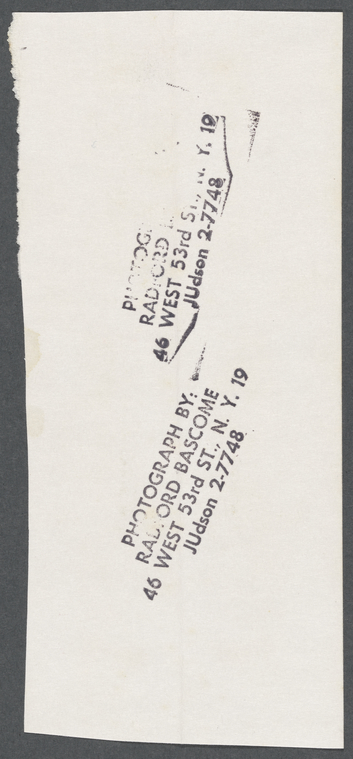 RADFORD
46 WEST 53rd ST., N. Y. 19
JUdson 2-7748
PHOTOGRAPH BY:
RADFORD BASCOME
46 WEST 53rd ST., N. Y. 19
JUdson 2-7748